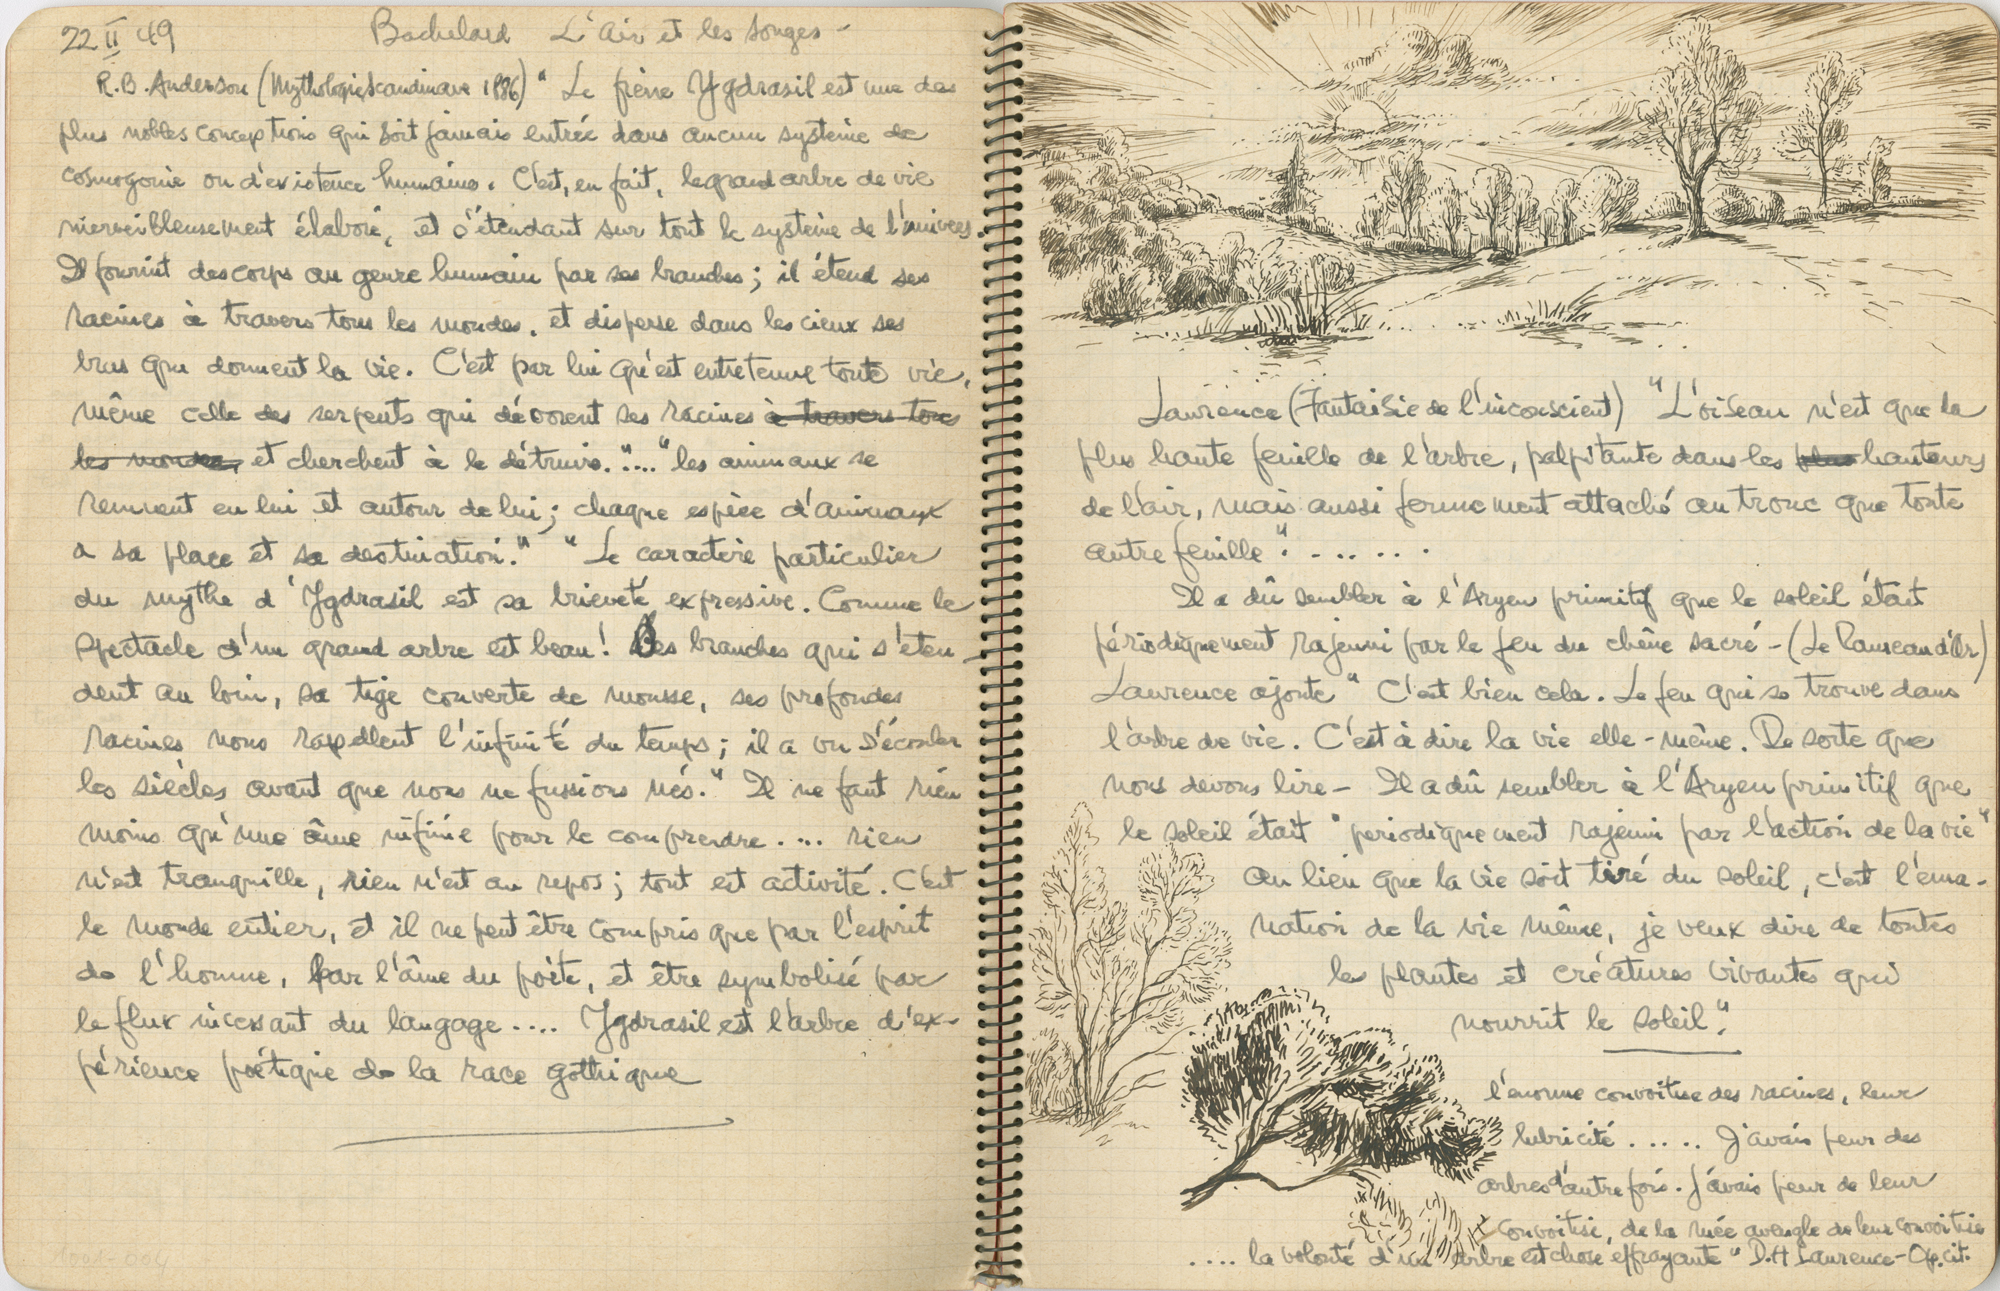 22 II 49 Bachelard L'Air et les songes -
R.B. Anderson (Mythologie Scandinave 1886) " Le frêne Ygdrasil est une des
plus nobles conceptions qui soit jamais entrée dans aucun système de
cosmogonie ou d'existence humaine. C'est, en fait, le grand arbre de vie
merveilleusement élaboré, et s'étendant sur tout le système de l'univers.
Il fournit des corps au genre humain par ses branches ; il étend ses
racines à travers tous les mondes, et disperse dans les cieux ses
bras qui donnent la vie. C'est par lui qu'est entretenue toute vie,
même celle des serpents qui dévorent ses racines à travers tous
les mondes, et cherchent à le détruire."...." les animaux se
remuent en lui et autour de lui ; chaque espèce d'animaux
a sa place et sa destination." " Le caractère particulier
du mythe d'Ygdrasil est sa brieveté expressive. Comme le
spectacle d'un grand arbre est beau ! Ses branches qui s'éten-
dent au loin, sa tige couverte de mousse, ses profondes
racines nous rappellent l'infinité du temps ; il a vu s'écouler
les siècles avant que nous ne fussions nés." Il ne faut rien
moins qu'une âme infinie pour le comprendre .... rien
n'est tranquille, rien n'est au repos ; tout est activité. C'est
le monde entier, et il ne peut être compris que par l'esprit
de l'homme, par l'âme du poète, et être symbolisé par
le flux incessant du langage .... Ygdrasil est l'arbre d'ex-
périence poétique de la race gothique
1001-004
Lawrence (Fantaisie de l'inconscient) "L'oiseau n'est que la
plus haute feuille de l'arbre, palpitante dans les plus hauteurs
de l'air, mais aussi fermement attaché au tronc que toute
autre feuille". - .. ... .
Il a dû sembler à l'Aryen primitif que le soleil était
périodiquement rajeuni par le feu du chêne sacré - (Le Rameau d'Or)
Lawrence ajoute " C'est bien cela. Le feu qui se trouve dans
l'arbre de vie. C'est à dire la vie elle-même. De sorte que
nous devons lire - Il a dû sembler à l'Aryen primitif que
le soleil était " periodiquement rajeuni par l'action de la vie"
au lieu que la vie soit tiré du soleil, c'est l'éma-
nation de la vie même, je veux dire de toutes
les plantes et créatures vivantes qui
nourrit le soleil".
l'énorme convoitise des racines, leur
lubricité ..... J'avais peur des
arbres d'autrefois. J'avais peur de leur
convoitise, de la ruée aveugle de leur convoitise
.... la volonté d'un arbre est chose effrayante" D.H Lawrence - Op. cit.